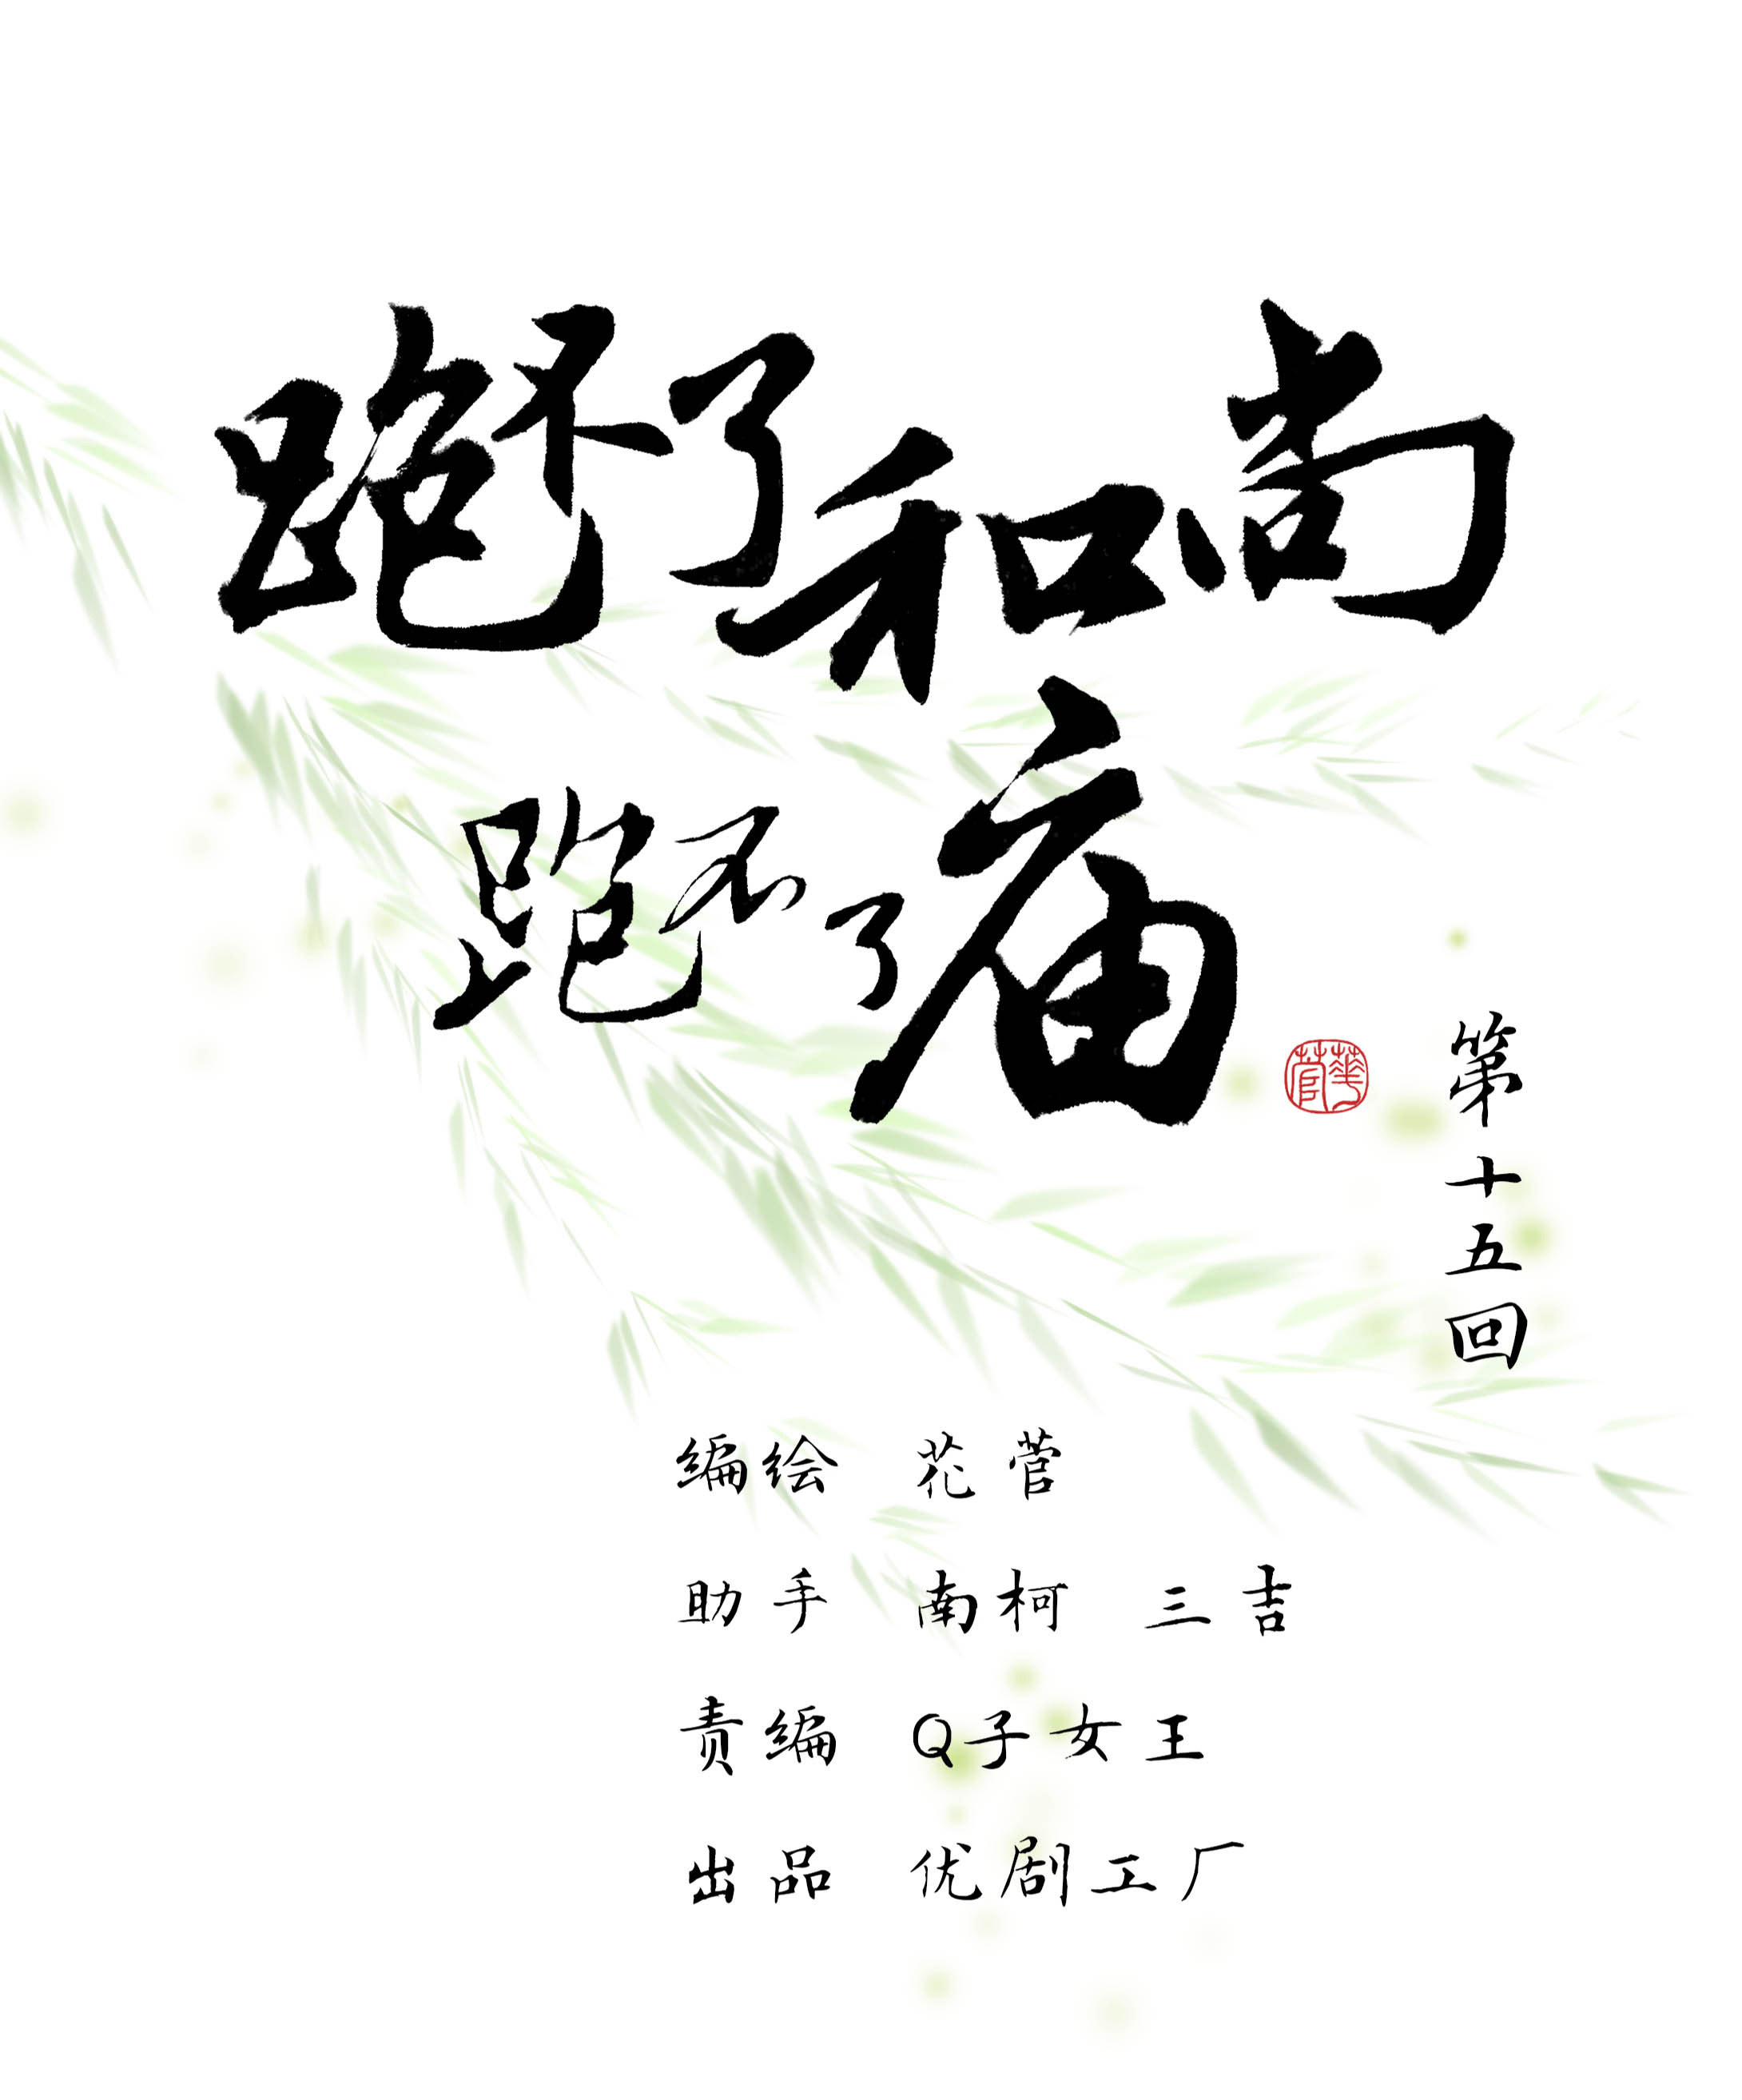 跑不了和尚
跑不了庙
華菅
第十五回
编绘 花菅
助手 南柯 三吉
责编 Q子女王
出品 优剧工厂